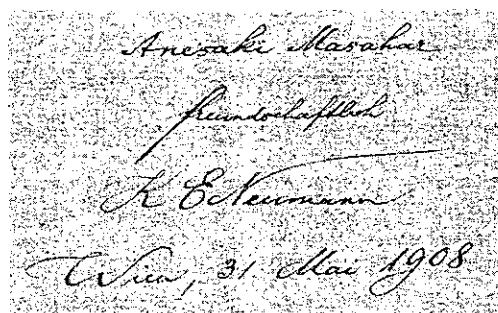 Anesaki Masahar
freundschaftlich
K E Neumann
Wien, 31 Mai 1908